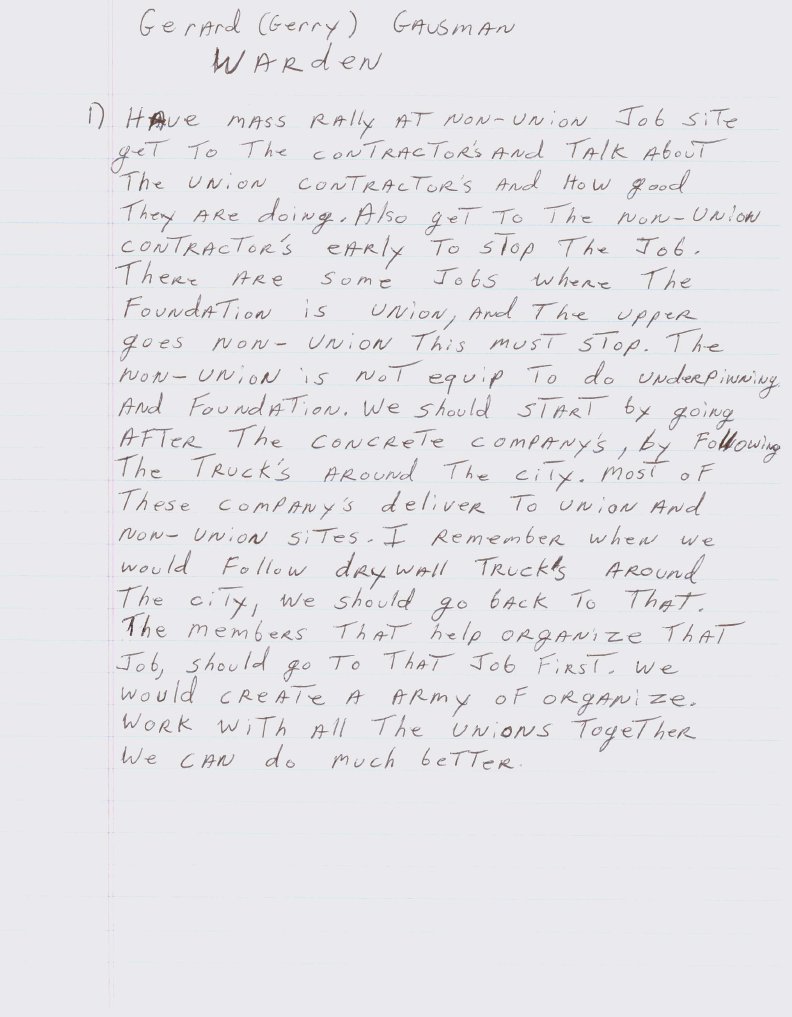 Gerard (Gerry) Gausman
Warden
1) Have mass rally at non-union Job site
get to the contractor's and talk about
the union contractor's and how good
they are doing. Also get to the non-union
contractor's early to stop the Job.
There are some Jobs where the
Foundation is union, and the upper
goes non-union this must stop. The
non-union is not equip to do underpinning
and Foundation. We should start by going
after the concrete company's, by Following
the truck's around the city. Most of
these company's deliver to union and
non-union sites. I remember when we
would Follow drywall truck's around
the city, we should go back to that.
The members that help organize that
Job, should go to that Job First. We
would create a army of organize.
Work with all the unions together
we can do much better.